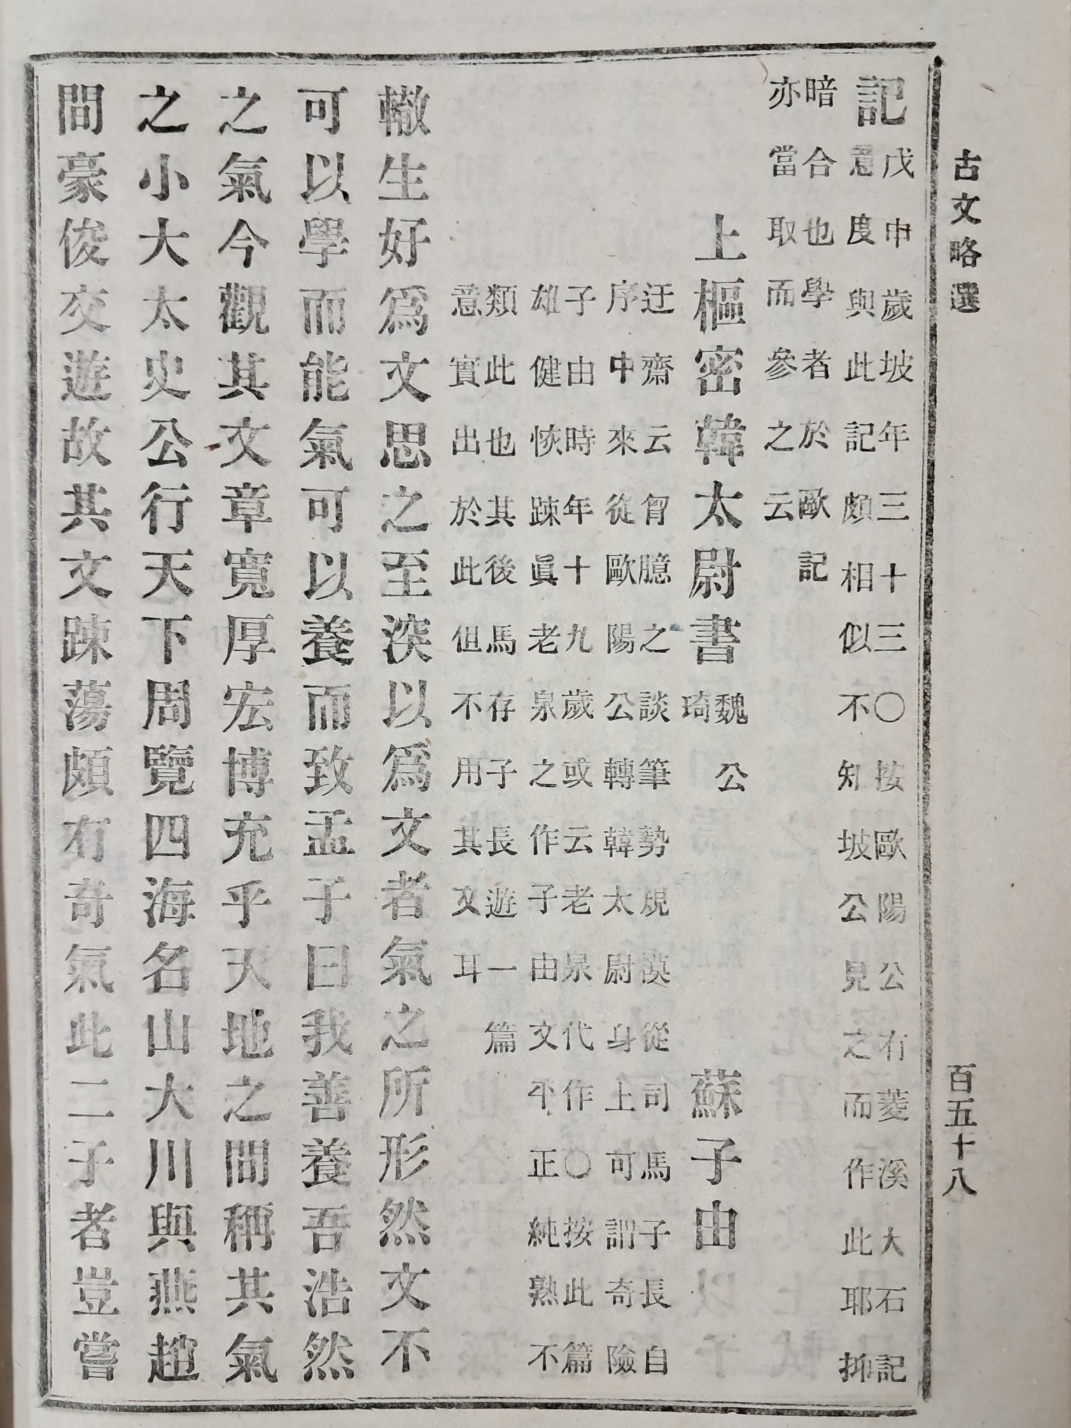 古文略選
百五十八
記
戊申歲坡年三十三〇按歐陽公有菱溪大石記
意度與此記頗相似不知坡公見之而作此耶抑
暗合也學者於歐記
亦當取而參之云
上樞密韓太尉書
魏公
琦
蘇子由
迂齋云胷臆之談筆勢規模從司馬子長自
序中來從歐陽公轉韓太尉身上可謂奇險
子由時年十九歲或云老泉代作〇按此篇
雄健恢踈眞老泉之作子由文平正純熟不
類此也其後馬存子長遊一篇
意實出於此但不用其文耳
轍生好爲文思之至深以爲文者氣之所形然文不
可以學而能氣可以養而致孟子曰我善養吾浩然
之氣今觀其文章寬厚宏博充乎天地之間稱其氣
之小大太史公行天下周覽四海名山大川與燕趙
間豪俊交遊故其文踈蕩頗有奇氣此二子者豈嘗